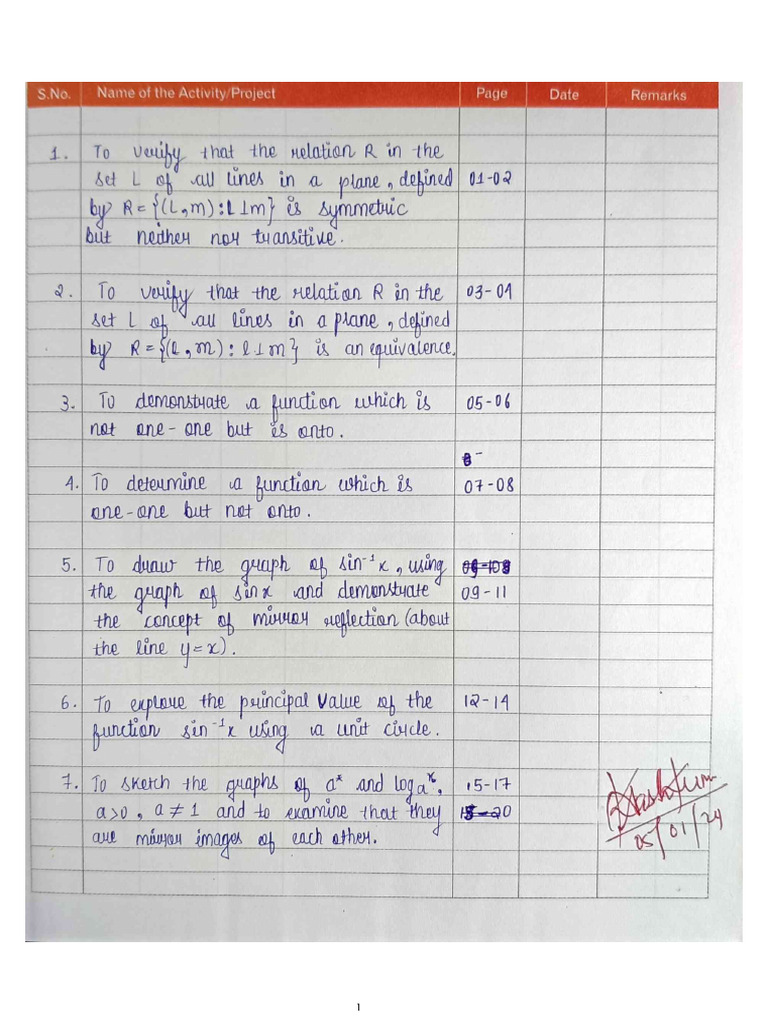 S.No. Name of the Activity/Project Page Date Remarks
1. To verify that the relation R in the
set L of all lines in a plane, defined 01-02
by R = {(L, m) : l ⊥ m} is symmetric
but neither nor transitive.
2. To verify that the relation R in the 03-04
set L of all lines in a plane, defined
by R = {(l, m) : l ⊥ m} is an equivalence.
3. To demonstrate a function which is 05-06
not one-one but is onto.
4. To determine a function which is 07-08
one-one but not onto.
5. To draw the graph of sin⁻¹x, using
the graph of sin x and demonstrate 09-11
the concept of mirror reflection (about
the line y = x).
6. To explore the principal value of the 12-14
function sin⁻¹x using a unit circle.
7. To sketch the graphs of aˣ and logₐx, 15-17
a>0, a ≠ 1 and to examine that they
are mirror images of each other.
05/01/24
1